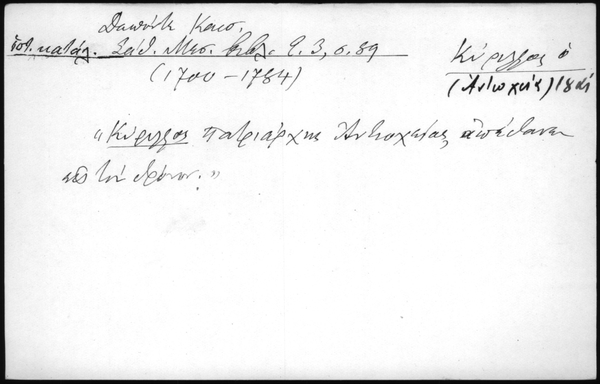 Δαπόντε Καισ.
ἱστ. κατάλ. Σάθ. Μεσ. Βιβλ. τ. 3, σ. 89
(1700 – 1784)
Κύριλλος ὁ
(Ἀντιοχείας) 18 αἰ
"Κύριλλος πατριάρχης Ἀντιοχείας, ἀπέθανεν
εἰς τὸν θρόνον."